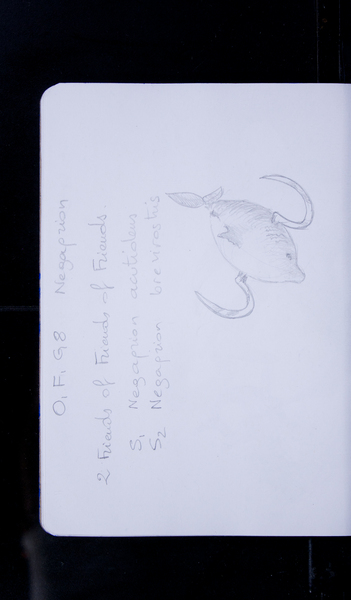 O, F, G8 Negaprion
2 Friends of Friends of Friends.
S1 Negaprion acutidens
S2 Negaprion brevirostis